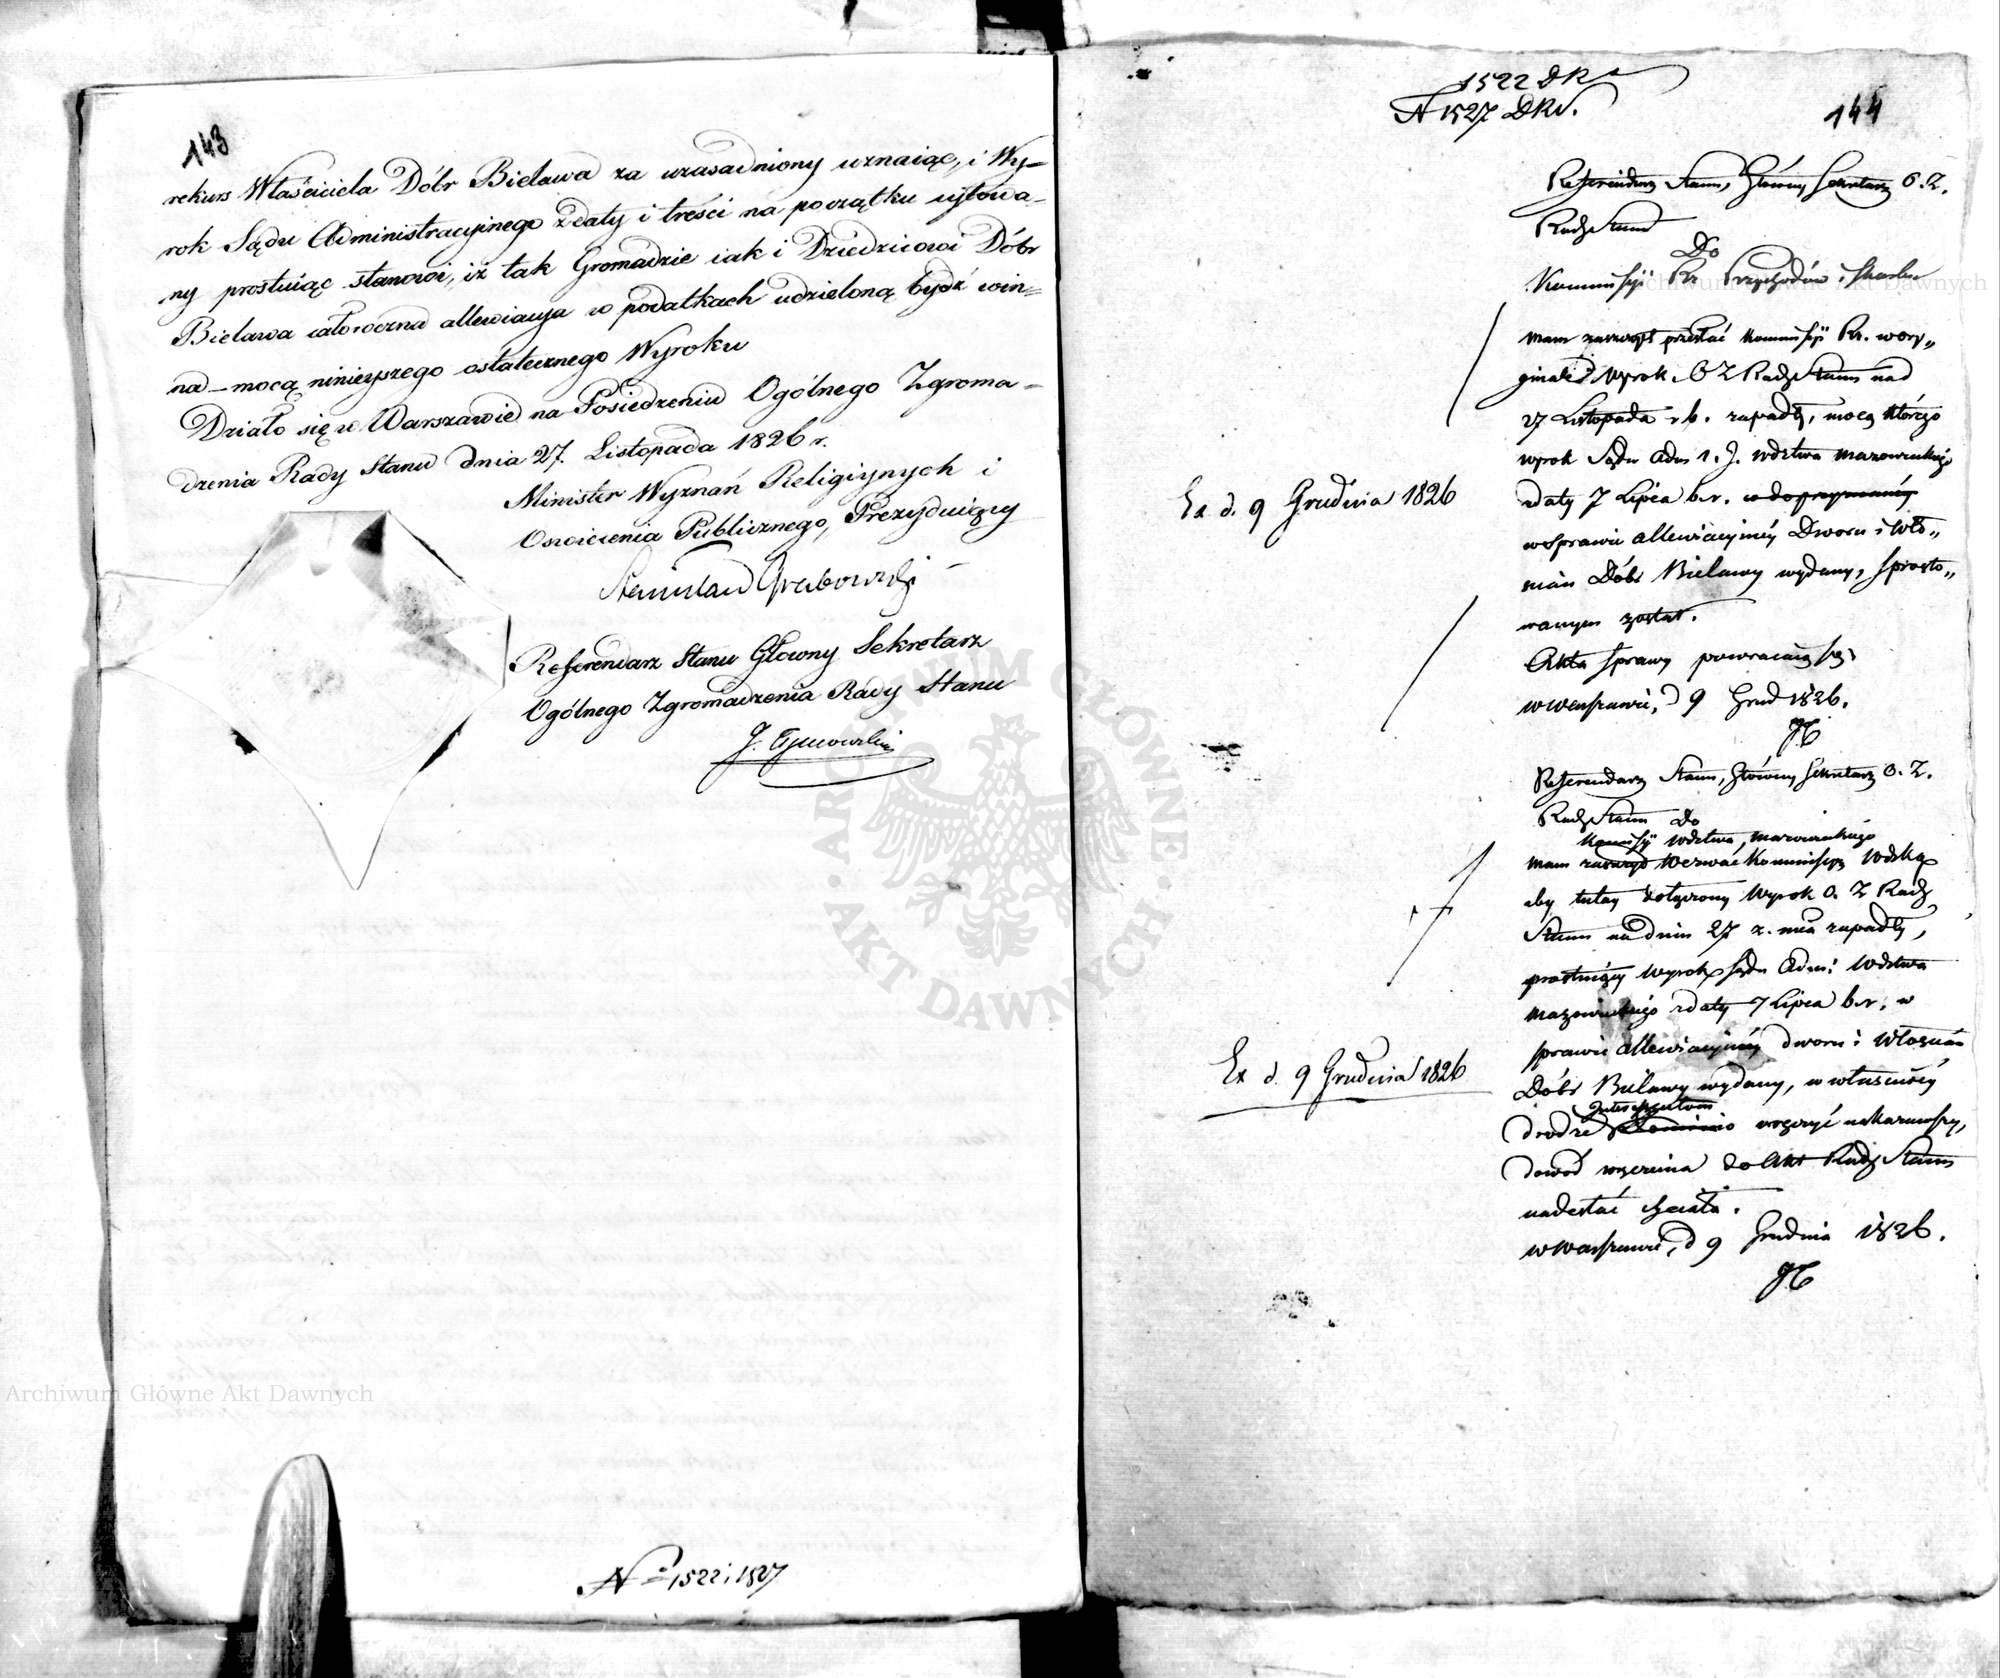 143
rekurs Właściciela Dóbr Bielawa za uzasadniony uznaiąc, i Wy-
rok Sądu Administracyinego z daty i treści na początku cytowa-
ny prostuiąc stanowi, iż tak Gromadzie iak i Dziedzicowi Dóbr
Bielawa całoroczna allewiacya w podatkach udzieloną bydź win-
na – mocą ninieyszego ostatecznego Wyroku
Działo się w Warszawie na Posiedzeniu Ogólnego Zgroma-
dzenia Rady Stanu dnia 27. Listopada 1826 r.
Minister Wyznań Religiynych i
Oświecenia Publicznego, Prezyduiący
Stanisław Grabowski
Referendarz Stanu Głowny Sekretarz
Ogólnego Zgromadzenia Rady Stanu
J.
№ 1522 i 1527
1522 DKr
N 1527 DKr.
144
Referendarz Stanu, Główny Sekretarz O. Z.
Rady Stanu
Do
Kommissyi Rz. Przychodów i Skarbu
mam zaszczyt przesłać Kommissyi Rz. w ory„
ginale Wyrok O Z Rady Stanu nad
27 Listopada r. b. zapadły, mocą którego
wyrok Sądu Adm 1. J. Wdztwa Mazowieckiego
Ex d. 9 Grudnia 1826
z daty 7 Lipca b. r.
w sprawie allewiacyiney Dworu i Wło„
ścian Dóbr Bielawy wydany, sprosto„
wanym został.
Akta sprawy powracaią się.
w Warszawie, d 9 Grud 1826.
JT
Referendarz Stanu, Główny Sekretarz O. Z.
Rady Stanu Do
Komissyi Wdztwa Mazowieckiego
mam zaszczyt wezwać Kommissyą Wdzką
aby tutay dołączony Wyrok O. Z Rady
Stanu na dniu 27 z. m. zapadły,
prostuiący Wyrok Sądu Adm: Wdztwa
Mazowieckiego z daty 7 Lipca b. r. w
sprawie allewiacyiney dworu i Włościan
Ex d. 9 Grudnia 1826
Dóbr Bielawy wydany, w właściwéy
drodze wręczyć nakazawszy,
dowód wręczenia do Akt Rady Stanu
nadesłać chciała.
w Warszawie, d 9 Grudnia 1826.
JT
Archiwum Główne Akt Dawnych
Archiwum Główne Akt Dawnych
ARCHIWUM GŁÓWNE
· AKT DAWNYCH ·